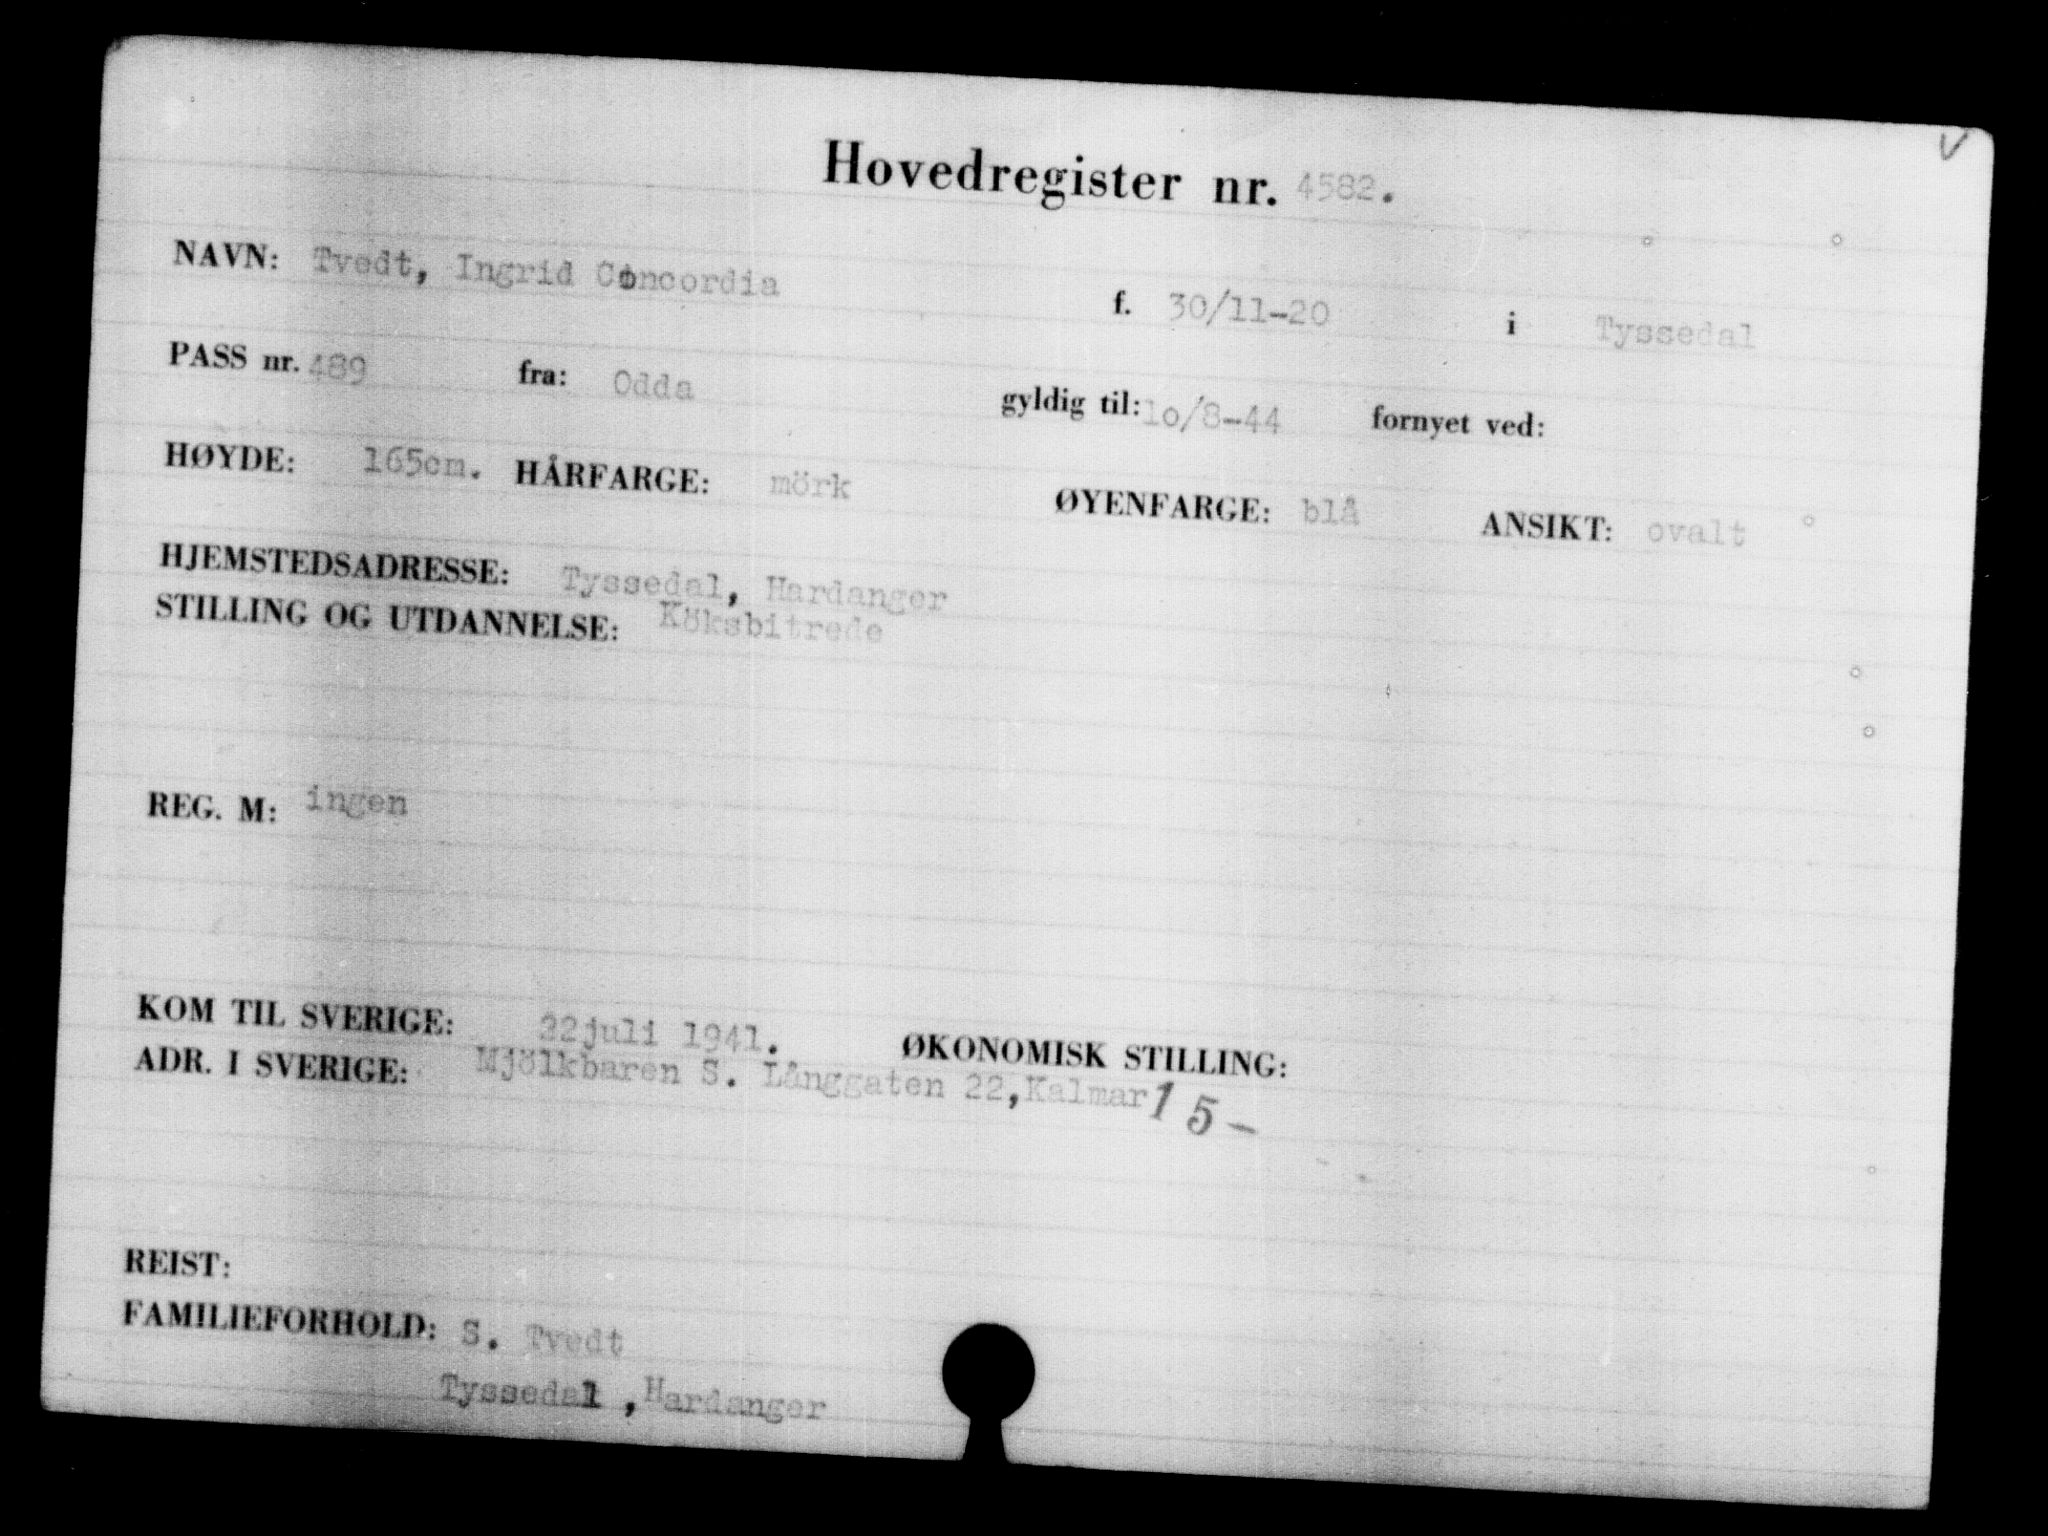 Hovedregister nr. 4582.
NAVN: Tvedt, Ingrid Concordia f. 30/11-20 i Tyssedal
PASS nr. 489 fra: Odda gyldig til: lo/8-44 fornyet ved:
HØYDE: 165cm. HÅRFARGE: mörk ØYENFARGE: blå ANSIKT: ovalt
HJEMSTEDSADRESSE: Tyssedal, Hardanger
STILLING OG UTDANNELSE: Köksbitrede
REG. M: ingen
KOM TIL SVERIGE: 22juli 1941. ØKONOMISK STILLING:
ADR. I SVERIGE: Mjölkbaren S. Långgaten 22,Kalmar 15-
REIST:
FAMILIEFORHOLD: S. Tvedt
Tyssedal ,Hardanger